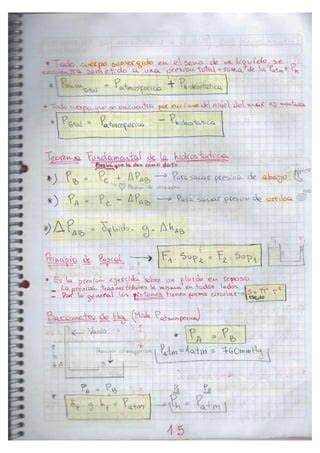 * Todo cuerpo sumergido en el seno de un líquido, se
encuentra sometido a una presión total = suma de la Patm + Ph
Total = Patmosférica + Phidrostática
* Todo cuerpo que se encuentra por encima del nivel del mar
Ptotal = Patmosférica - Phidrostática
Teorema Fundamental de la hidrostática
*) PB = PC + ΔPAB → Para sacar presión de abajo
*) PA = PC - ΔPAB → Para sacar presión de arriba
*) ΔPAB = δ . g . ΔhAB
Principio de Pascal → F1 . Sup2 = F2 . Sup1
* Es la presión ejercida sobre un fluido en reposo.
- La presión la misma en todos lados
- Por lo general los pistones tienen forma circular → S = π . r²
Barómetro de Hg (Mide Patmosférica)
← Vacío
* PA = PB
Patm = 1 atm = 760 mmHg
A
B
PA = PB
. g . h = Patm → Ph = Patm
15